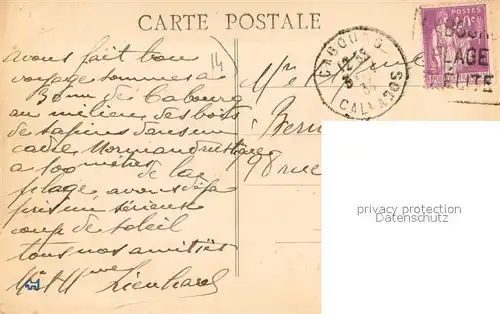 CARTE POSTALE
14
Avons fait bon
voyage sommes a
de Cabourg
au milieu des bois
de sapins dans un
cadre Normand
a 500 mètres de la
plage avons déja
pris un sérieux
coup de soleil
tous nos amitiés
Mr et Mme Lienhard
Mr et
98 rue
CABOURG
CALVADOS
POSTES
LAGE
ELITE
privacy protection
Datenschutz